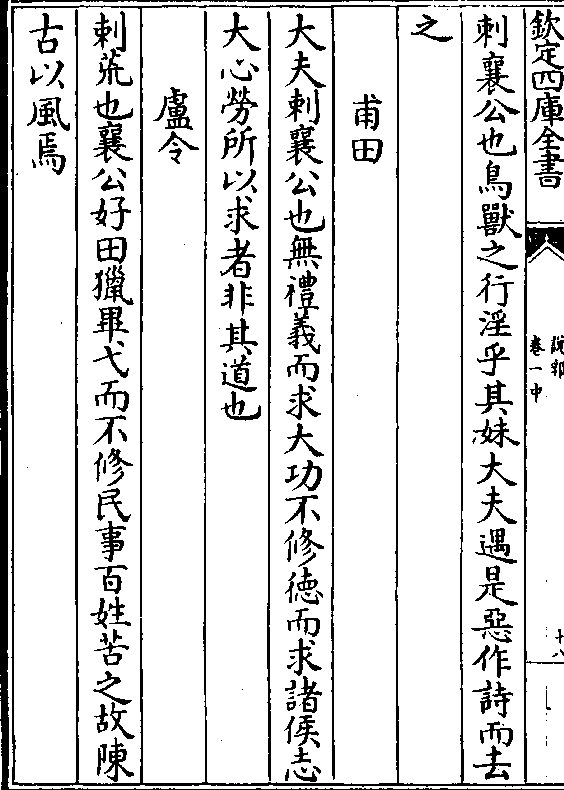 欽定四庫全書
説郛
卷一中
十八
刺襄公也鳥獸之行淫乎其妹大夫遇是惡作詩而去
之
甫田
大夫刺襄公也無禮義而求大功不修徳而求諸侯志
大心勞所以求者非其道也
盧令
刺荒也襄公好田獵畢弋而不修民事百姓苦之故陳
古以風焉